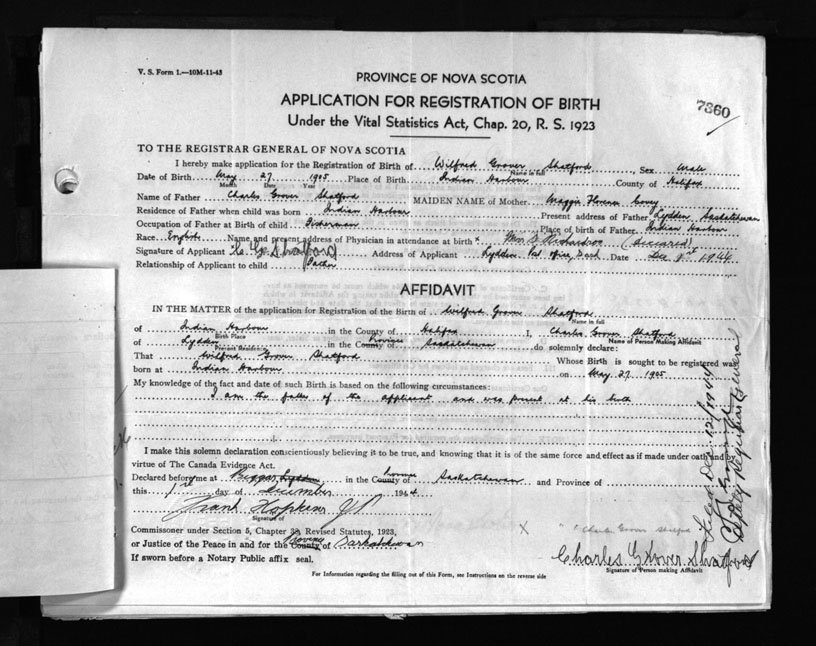 V. S. Form 1.—10M-11-43
PROVINCE OF NOVA SCOTIA
7360
APPLICATION FOR REGISTRATION OF BIRTH
Under the Vital Statistics Act, Chap. 20, R. S. 1923
TO THE REGISTRAR GENERAL OF NOVA SCOTIA
I hereby make application for the Registration of Birth of Wilfred Grover Shatford, Sex Male
Name in full
Date of Birth May 27 1905 Place of Birth Indian Harbour County of Halifax
Month Date Year
Name of Father Charles Grover Shatford MAIDEN NAME of Mother Maggie Florence Covey
Residence of Father when child was born Indian Harbour Present address of Father Lydden, Saskatchewan
Occupation of Father at Birth of child Fisherman Place of birth of Father Indian Harbour
Race English Name and present address of Physician in attendance at birth Mrs Richardson (deceased)
Signature of Applicant C. G. Shatford Address of Applicant Lydden Post office, Sask Date Dec 1st 1944
Relationship of Applicant to child Father
AFFIDAVIT
IN THE MATTER of the application for Registration of the Birth of Wilfred Grover Shatford
Name in full
of Indian Harbour in the County of Halifax I, Charles Grover Shatford
Birth Place Name of Person Making Affidavit
of Lydden in the County of Province Saskatchewan do solemnly declare:
Present Residence
That Wilfred Grover Shatford Whose Birth is sought to be registered was
born at Indian Harbour on May 27 1905
My knowledge of the fact and date of such Birth is based on the following circumstances:
I am the father of the applicant and was present at his birth
I make this solemn declaration conscientiously believing it to be true, and knowing that it is of the same force and effect as if made under oath and by
virtue of The Canada Evidence Act.
Declared before me at Biggar Lydden in the County of Province Saskatchewan and Province of
this 1st day of December 1944
Frank Hopkins JP
Signature of
Commissioner under Section 5, Chapter 38, Revised Statutes, 1923,
or Justice of the Peace in and for the County of Province Saskatchewan
If sworn before a Notary Public affix seal.
X Charles Grover Shatford
Charles Grover Shatford
Signature of Person making Affidavit
For Information regarding the filling out of this Form, see Instructions on the reverse side
Filed Dec 12/1944
Deputy Registrar General